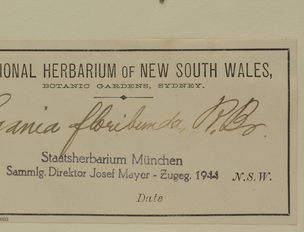 IONAL HERBARIUM OF NEW SOUTH WALES,
BOTANIC GARDENS, SYDNEY.
floribunda, R. Br.
Staatsherbarium München
Sammlg. Direktor Josef Mayer - Zugeg.
N.S.W.
Date